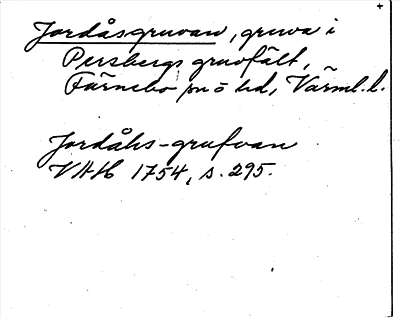 Jordåsgruvan, gruva i
Persbergs gruvfält,
Färnebo sn ö hd, Värml. l.
Jordåhs-grufvan
VAH 1754, s. 295.